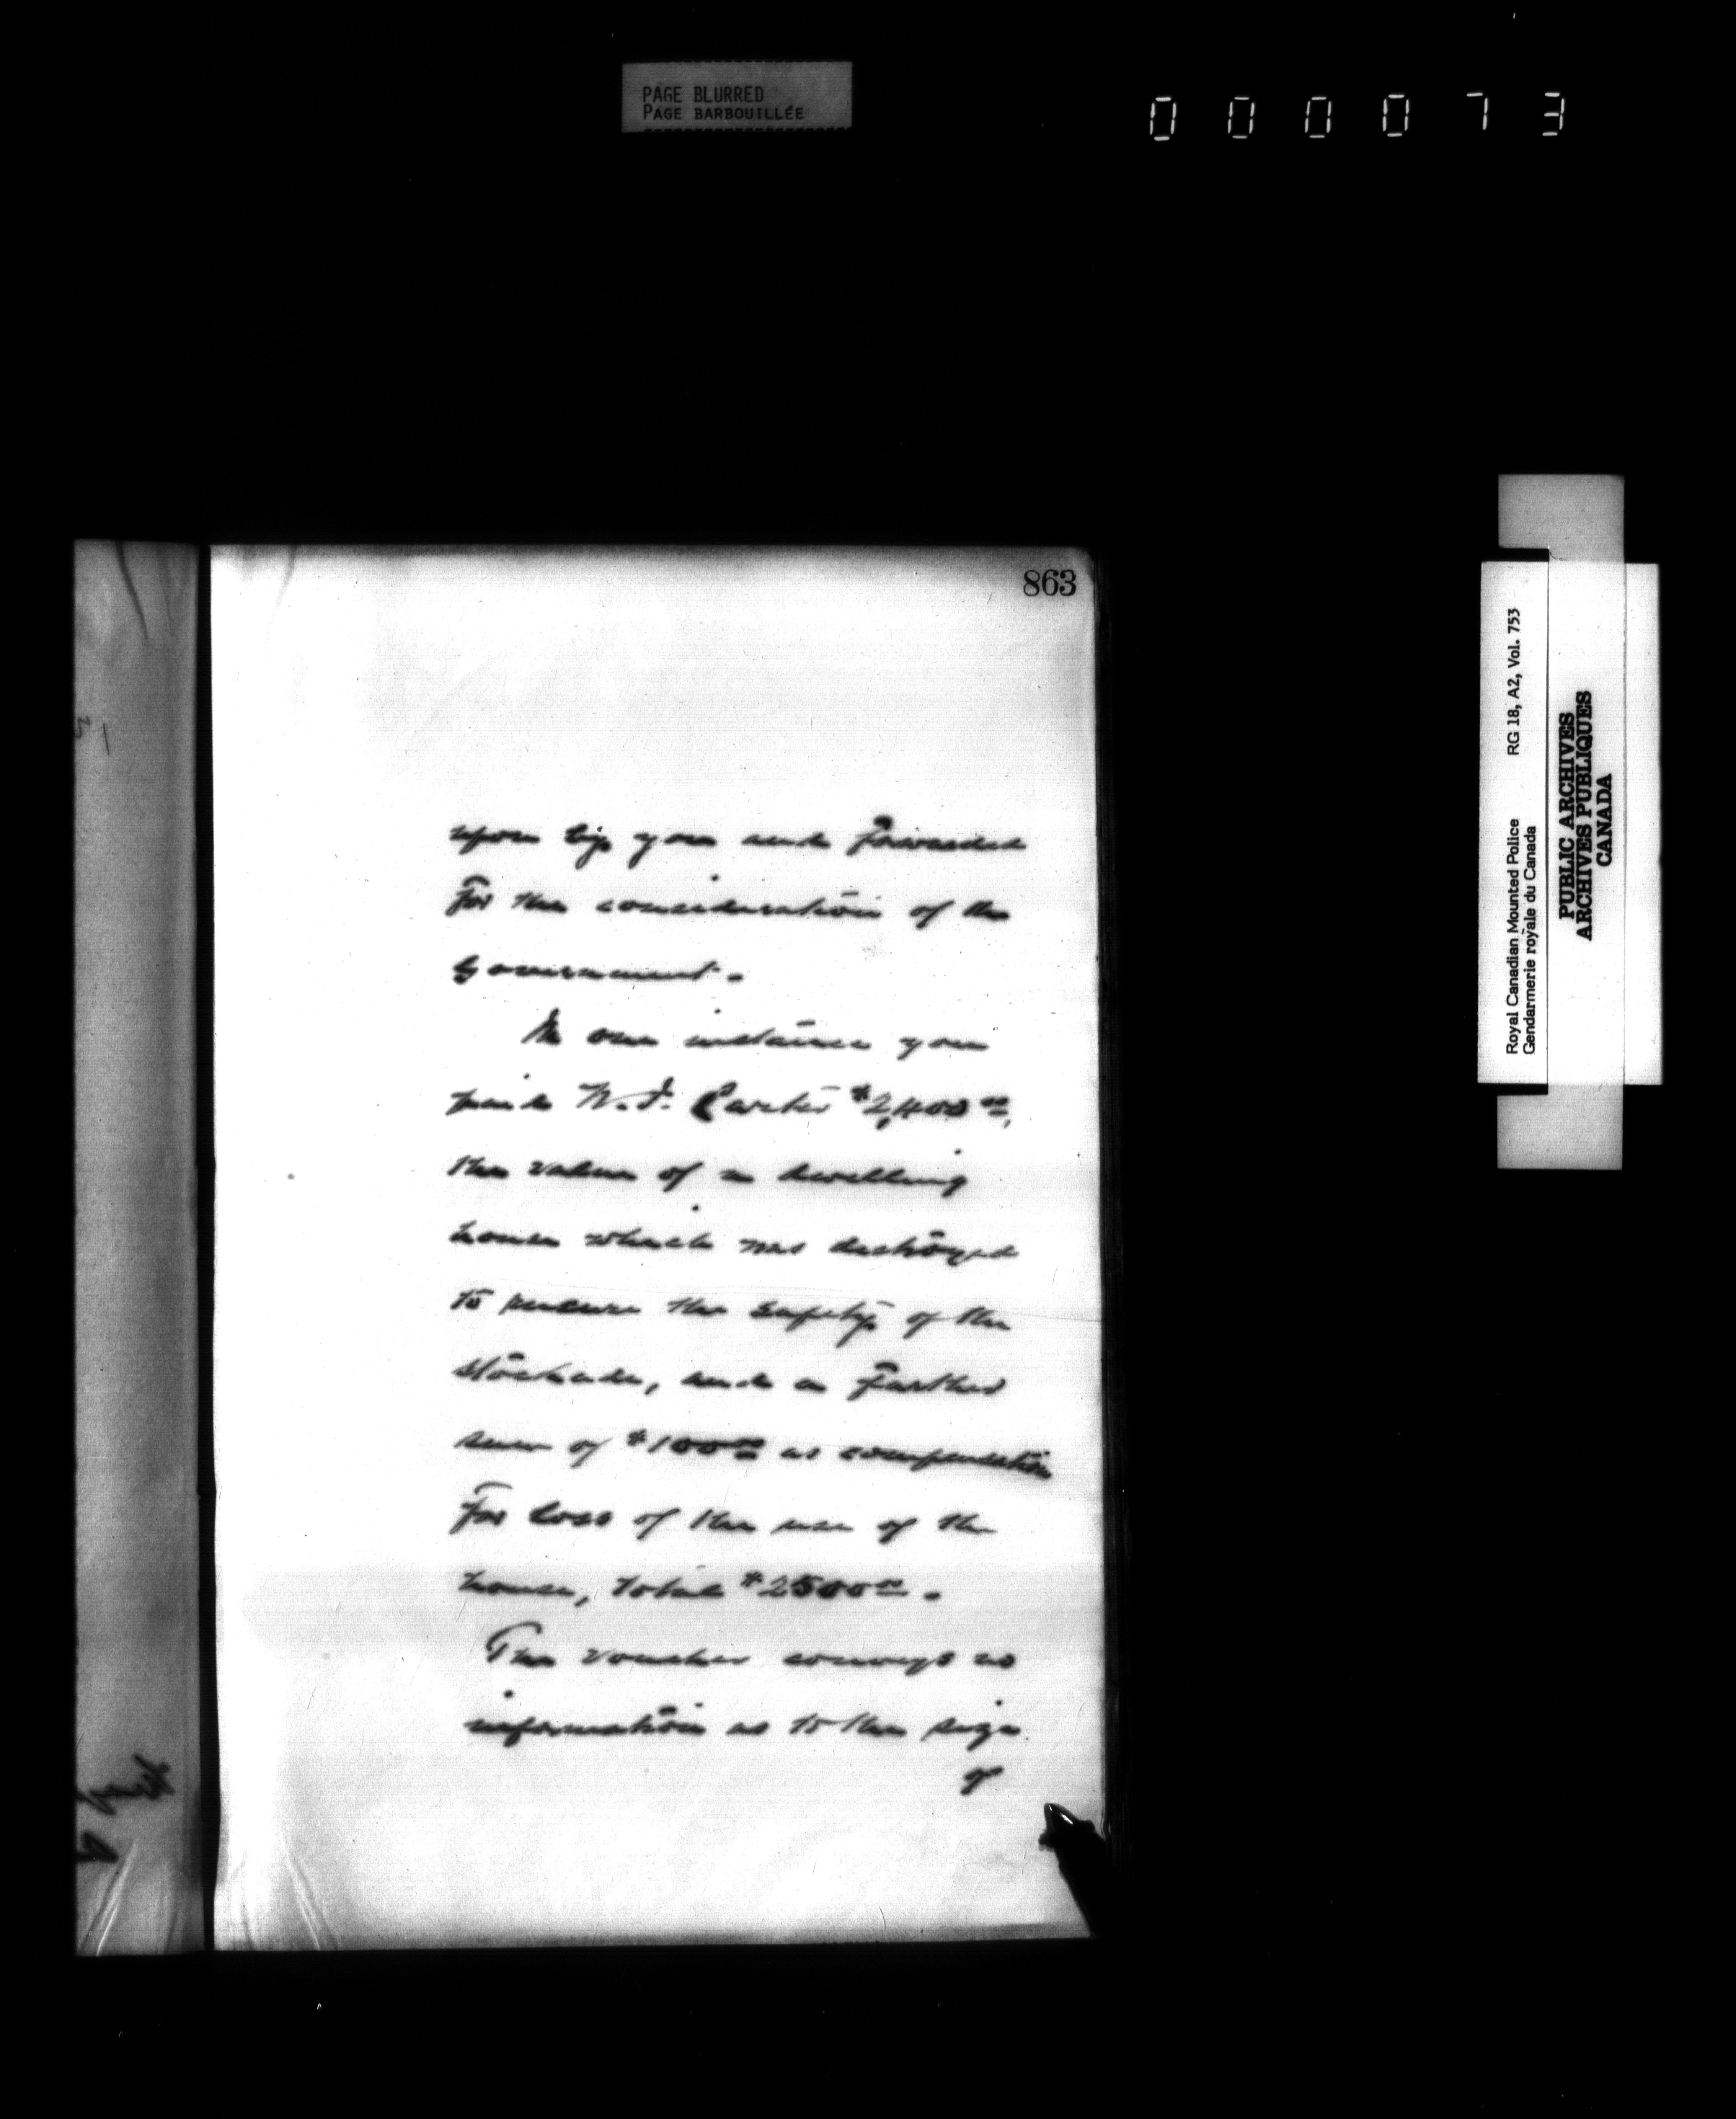 PAGE BLURRED
PAGE BARBOUILLÉE
000073
863
upon by you and forwarded
for the consideration of the
Government.
In one instance you
paid W. J. Carter $2,400 00,
the value of a dwelling
house which was destroyed
to secure the safety of the
stockade, and a further
sum of $100 00 as compensation
for loss of the use of the
house, total $2500 00.
The voucher conveys no
information as to the size
of
Royal Canadian Mounted Police RG 18, A2, Vol. 753
Gendarmerie royale du Canada
PUBLIC ARCHIVES
ARCHIVES PUBLIQUES
CANADA